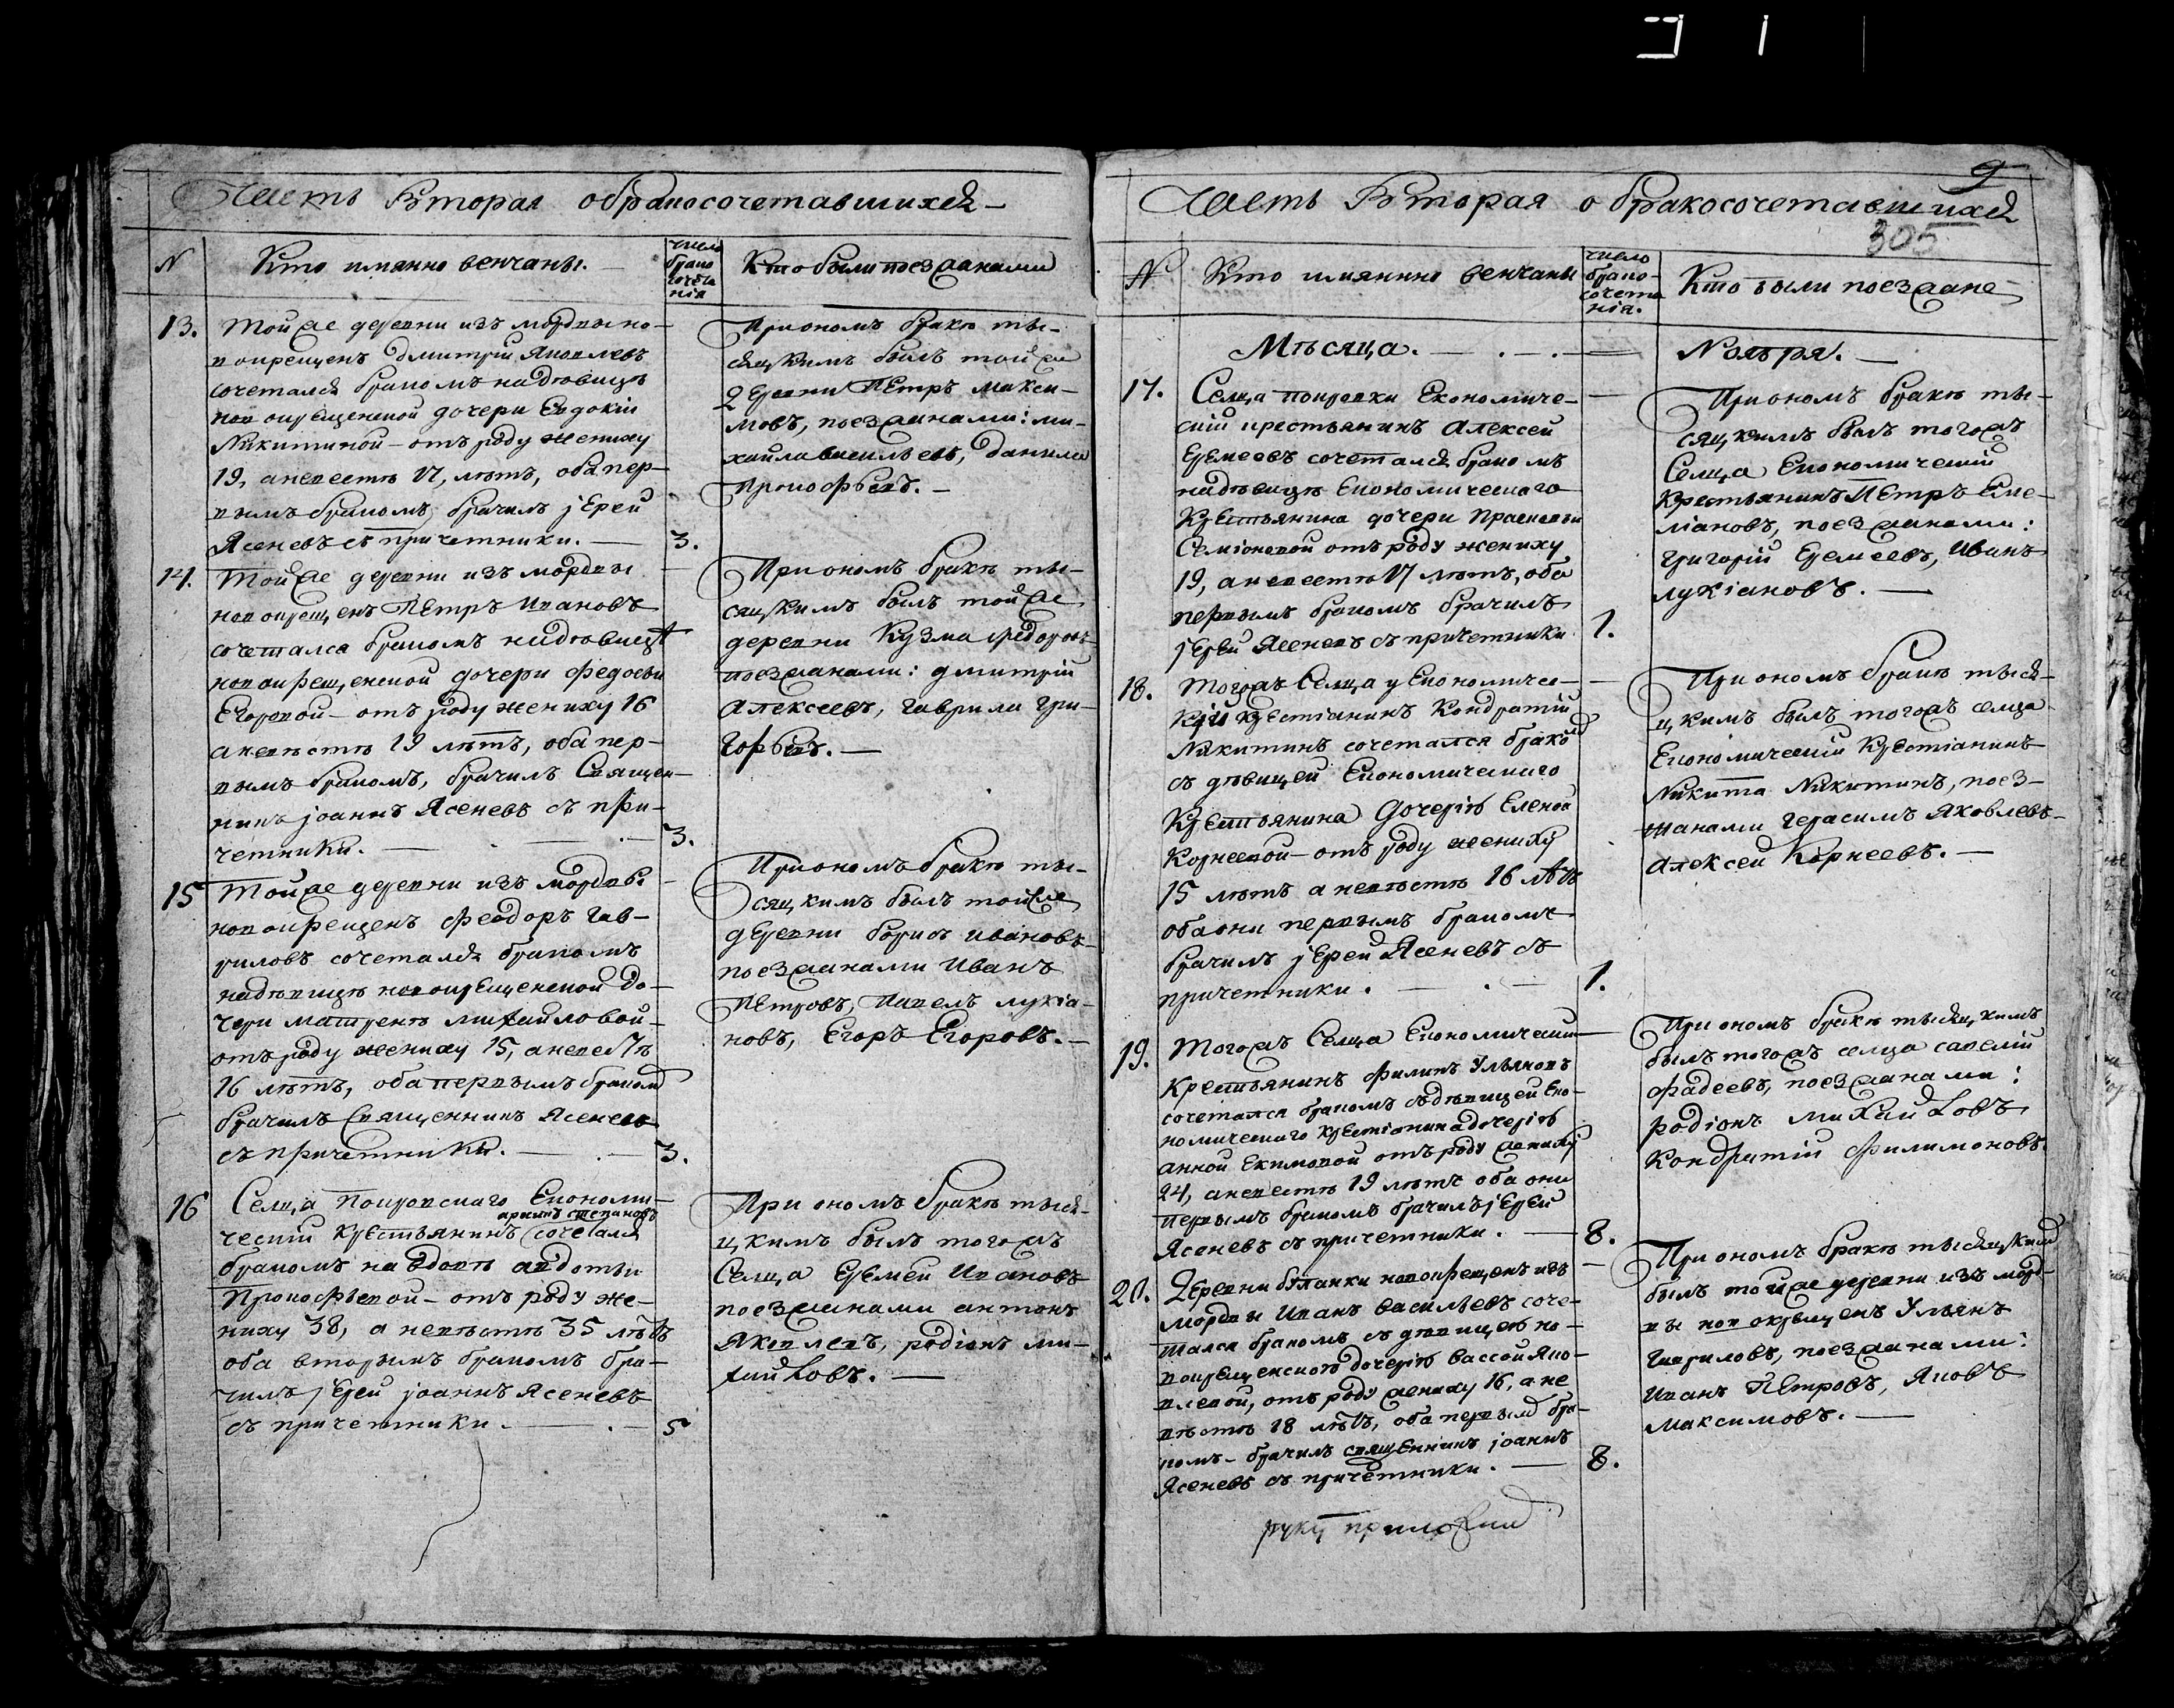 Часть Вторая обракосочетавшихся
N
Кто имянно венчаны.
число
брако
сочета
нія
Кто были поезжанами
13.
Тойже деревни изъ мордвы но-
вокрещенъ Дмитрій Яковлевъ
сочетался бракомъ надѣвицѣ
новокрещенской дочери Евдокіи
Никитиной - отъ роду жениху
19, аневестѣ 17, лѣтъ, оба пер-
вымъ бракомъ, брачилъ јерей
Ясеневъ съ причетники. 3.
При ономъ бракѣ ты-
сяцкимъ былъ тойже
деревни Петръ Макси-
мовъ, поезжанами: ми-
хайла васильевъ, данила
Прокофьевъ.
14.
Тойже деревни изъ мордвы
новокрещенъ Петръ Ивановъ
сочетался бракомъ надѣвицѣ
новокрещенской дочери Федосьи
Егоровой - отъ роду жениху 16
аневѣстѣ 19 лѣтъ, оба пер-
вымъ бракомъ, брачилъ Священ-
никъ јоаннъ Ясеневъ съ при-
четники. 3.
При ономъ бракѣ ты-
сяцкимъ былъ тойже
деревни Кузма федоровъ
поезжанами: дмитрій
Алексеевъ, гаврила гри-
горьевъ.
15
Тойже деревни изъ мордвы
новокрещенъ Феодоръ гав-
риловъ сочетался бракомъ
надѣвицѣ новокрещенской до-
чери матренѣ михайловой -
отъ роду жениху 15, аневестѣ
16 лѣтъ, оба первымъ бракомъ
брачилъ Священникъ Ясеневъ
съ причетники. 3.
При ономъ бракѣ ты-
сяцкимъ былъ тойже
деревни борисъ ивановъ
поезжанами Иванъ
Петровъ, Павелъ лукіа-
новъ, Егоръ Егоровъ.
16
Селца Покровскаго Економи-
архипъ степановъ
ческій крестьянинъ сочетался
бракомъ на вдовѣ авдотьи
Прокофьевой - отъ роду же-
ниху 38, а невѣстѣ 35 лѣтъ
оба вторымъ бракомъ бра-
чилъ јерей јоаннъ Ясеневъ
съ причетники. 5
При ономъ бракѣ тыся-
цкимъ былъ тогожъ
Селца Еремей Ивановъ
поезжанами антонъ
Яковлевъ, родіонъ ми-
хайловъ.
9
Часть Вторая о бракосочетавшихся
305
N
Кто имянно венчаны
число
брако-
сочета
нія.
Кто были поезжане
Мѣсяца.
Ноября.
17.
Селца покровки Економиче-
скій крестьянинъ Алексей
Еремеевъ сочетался бракомъ
надѣвицѣ Економическаго
Крестьянина дочери Прасковьи
Семіоновой отъ роду жениху
19, аневестѣ 17 лѣтъ, оба
первымъ бракомъ брачилъ
јерей Ясеневъ съ причетники 1.
При ономъ бракѣ ты-
сяцкимъ былъ тогожъ
Селца Економическій
Крестьянинъ Петръ Еме-
ліановъ, поезжанами:
григорій Еремеевъ, Иванъ
лукіановъ.
18.
Тогожъ Селца Економичес-
кій крестіанинъ Кондратій
Никитинъ сочетался бракомъ
съ дѣвицей Економическаго
Крестьянина дочерію Еленой
Корнеевой - отъ роду жениху
15 лѣтъ а невѣстѣ 16 лѣтъ
оба они первымъ бракомъ
брачилъ јерей Ясеневъ съ
причетники. 1.
При ономъ бракѣ тыся-
цкимъ былъ тогожъ селца
Економическій Крестіанинъ
Никита Никитинъ, поез-
жанами герасимъ Яковлевъ
Алексей Корнеевъ.
19.
Тогожъ Селца Економическій
Крестьянинъ Филипъ Ульяновъ
сочетался бракомъ съ дѣвицей Еко-
номическаго крестіянина дочерію
анной Екимовой отъ роду жениху
24, аневестѣ 19 лѣтъ оба они
первымъ бракомъ брачилъ јерей
Ясеневъ съ причетники. 8.
При ономъ бракѣ тысяцкимъ
былъ тогожъ селца савелій
фадеевъ, поезжанами:
родіонъ михайловъ
Кондратій филимоновъ.
20.
Деревни новокрещенъ изъ
мордвы Иванъ васильевъ соче-
тался бракомъ съ дѣвицею но-
вокрещенскою дочерію вассой Яко-
влевой, отъ роду жениху 16, а не
вѣстѣ 18 лѣтъ, оба первымъ бра-
комъ - брачилъ священникъ јоаннъ
Ясеневъ съ причетники. 8.
При ономъ бракѣ тысяцкимъ
былъ тойже деревни изъ морд-
вы новокрещенъ Ульянъ
Гавриловъ, поезжанами:
Иванъ Петровъ, Яковъ
максимовъ.
руку приложилъ